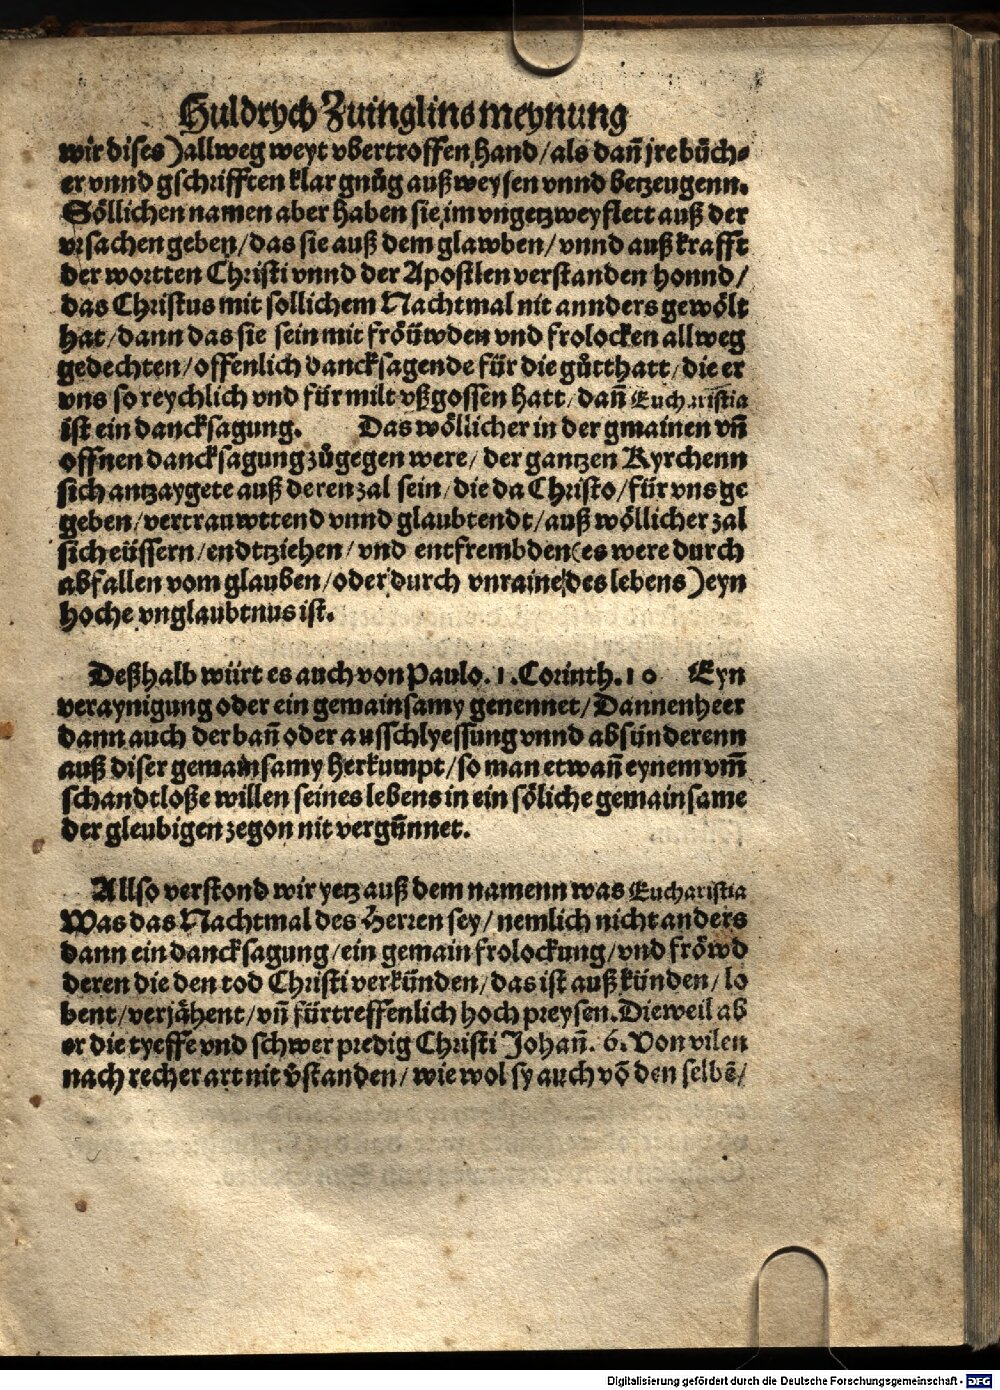 Huldrych Zuinglins meynung
wir dises) allweg weyt vbertroffen hand/ als dañ jre bůch-
er vnnd gschrifften klar gnůg auß weysen vnnd betzeugenn.
Söllichen namen aber haben sie im vngetzweyflett auß der
vrsachen geben/ das sie auß dem glawben/ vnnd auß krafft
der wortten Christi vnnd der Apostlen verstanden honnd/
das Christus mit sollichem Nachtmal nit annders gewölt
hat/ dann das sie sein mit fröüwden vnd frolocken allweg
gedechten/ offenlich dancksagende für die gůtthatt/ die er
vns so reychlich vnd für milt vßgossen hatt/ dañ Eucharistia
ist ein dancksagung. Das wöllicher in der gmainen vñ
offnen dancksagung zůgegen were/ der gantzen Kyrchenn
sich antzaygete auß deren zal sein/ die da Christo/ für vns ge
geben/ vertrauwttend vnnd glaubtendt/ auß wöllicher zal
sich eüssern/ endtziehen/ vnd entfrembden (es were durch
abfallen vom glauben/ oder durch vnraine des lebens) eyn
hoche vnglaubtnus ist.
Deßhalb würt es auch von Paulo. 1. Corinth. 10 Eyn
veraynigung oder ein gemainsamy genennet/ Dannenheer
dann auch der bañ oder ausschlyessung vnnd absünderenn
auß diser gemainsamy herkumpt/ so man etwañ eynem vm̃
schandtloße willen seines lebens in ein söliche gemainsame
der gleubigen zegon nit vergünnet.
Allso verstond wir yetz auß dem namenn was Eucharistia
Was das Nachtmal des Herren sey/ nemlich nicht anders
dann ein dancksagung/ ein gemain frolockung/ vnd fröwd
deren die den tod Christi verkünden/ das ist auß künden/ lo
bent/ verjähent/ vñ fürtreffenlich hoch preysen. Dieweil ab
er die tyeffe vnd schwer predig Christi Johañ. 6. Von vilen
nach recher art nit v̈standen/ wie wol sy auch võ den selbẽ/
Digitalisierung gefördert durch die Deutsche Forschungsgemeinschaft - DFG